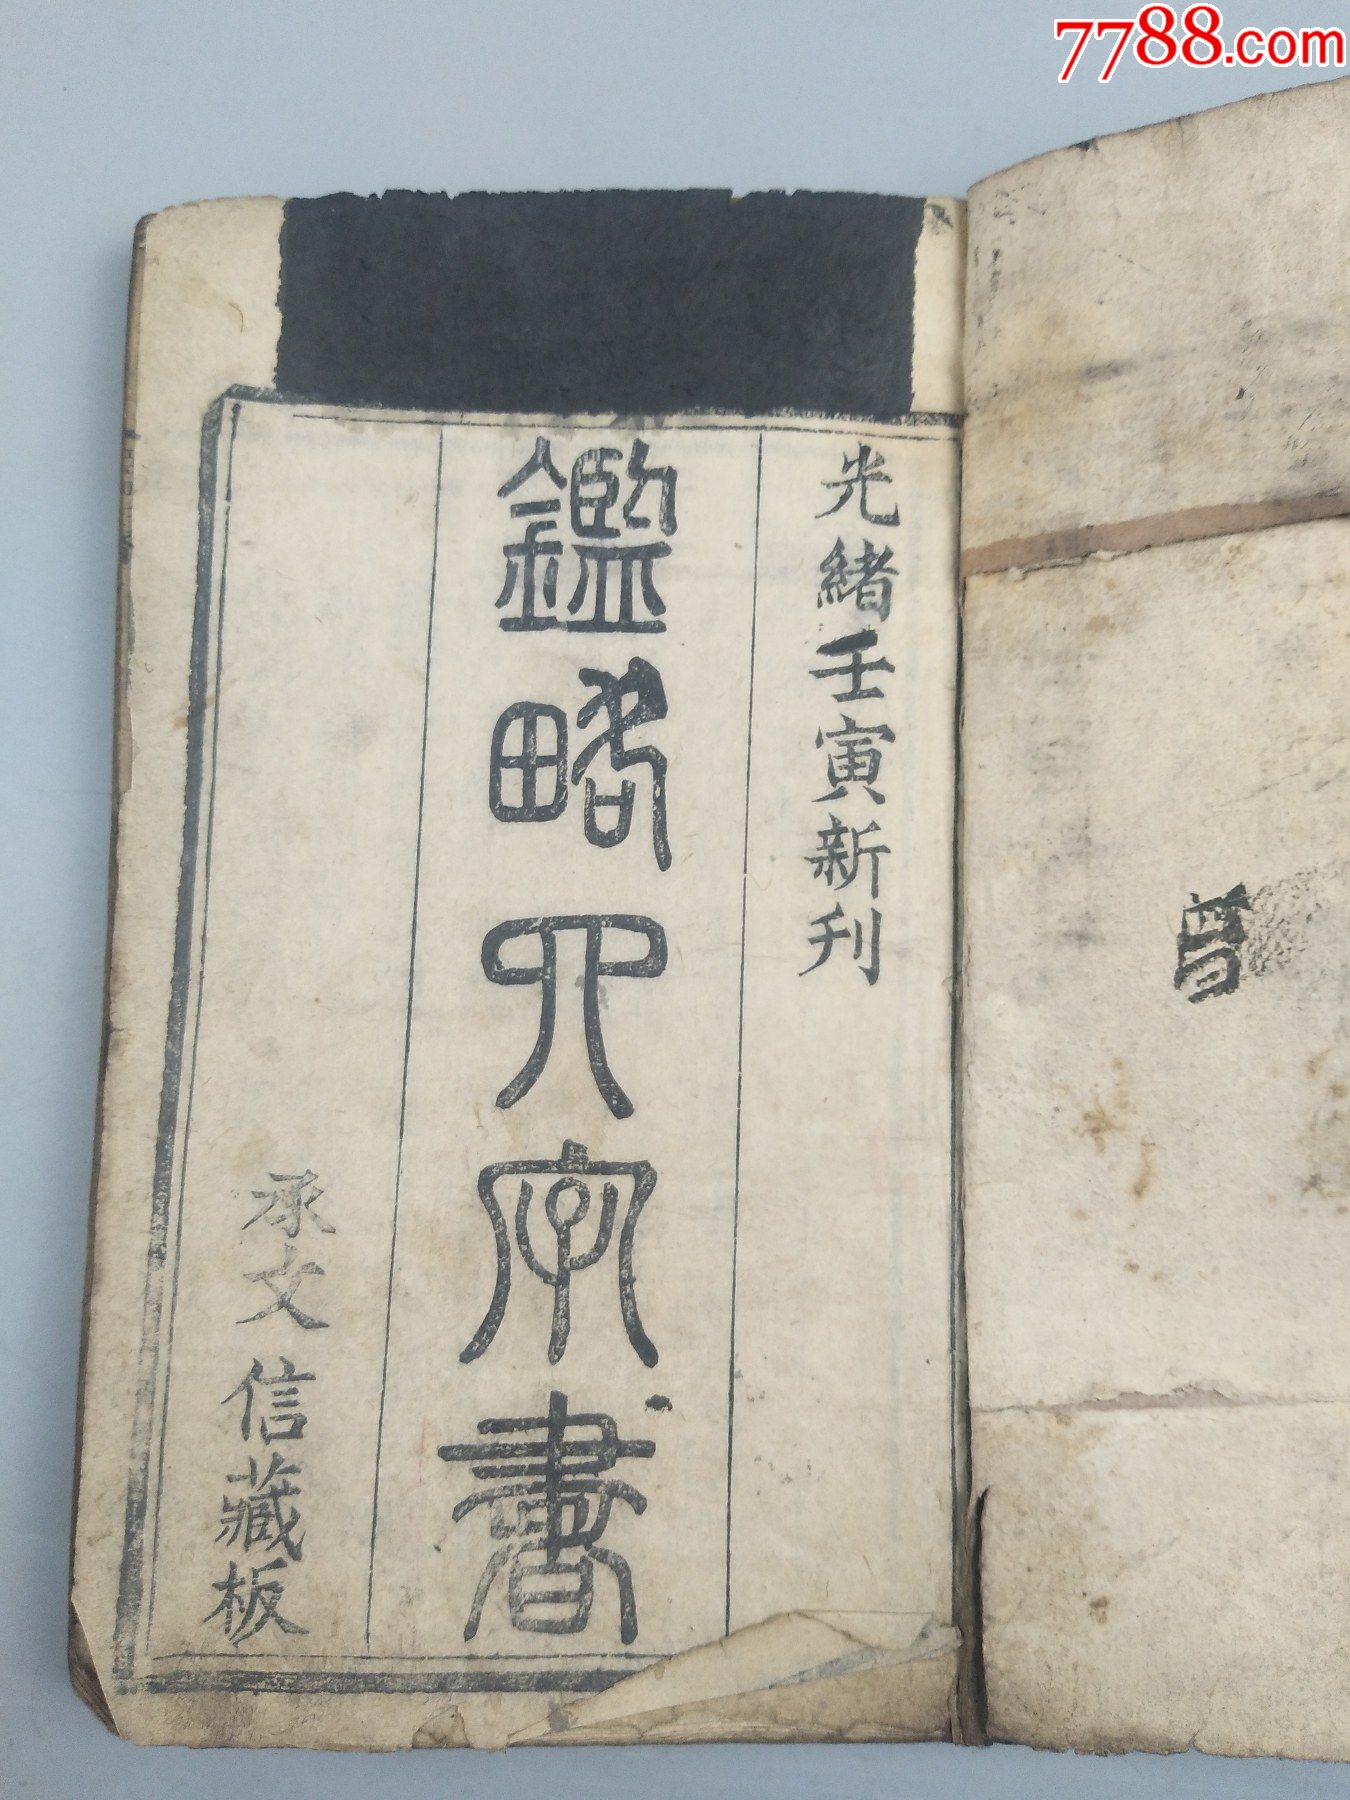 7788.com
光緒壬寅新刊
鑑略四字書
承文信藏板